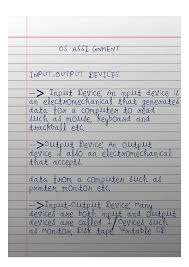 OS ASSIGNMENT
INPUT-OUTPUT DEVICES
--> Input Device: An input device is
an electromechanical that generates
data for a computer to read
such as mouse, keyboard and
trackball etc.
--> Output Device: An Output
device is also an electromechanical
that accept
data from a computer such as
printer, monitor etc.
--> Input-Output Device: Many
devices are both input and Output
devices are called I Devices such
as Monitor, Disk tape, Writable CD